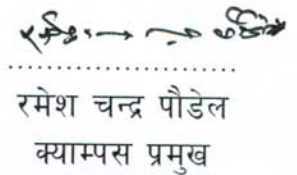 रमेश चन्द्र पौडेल
क्याम्पस प्रमुख